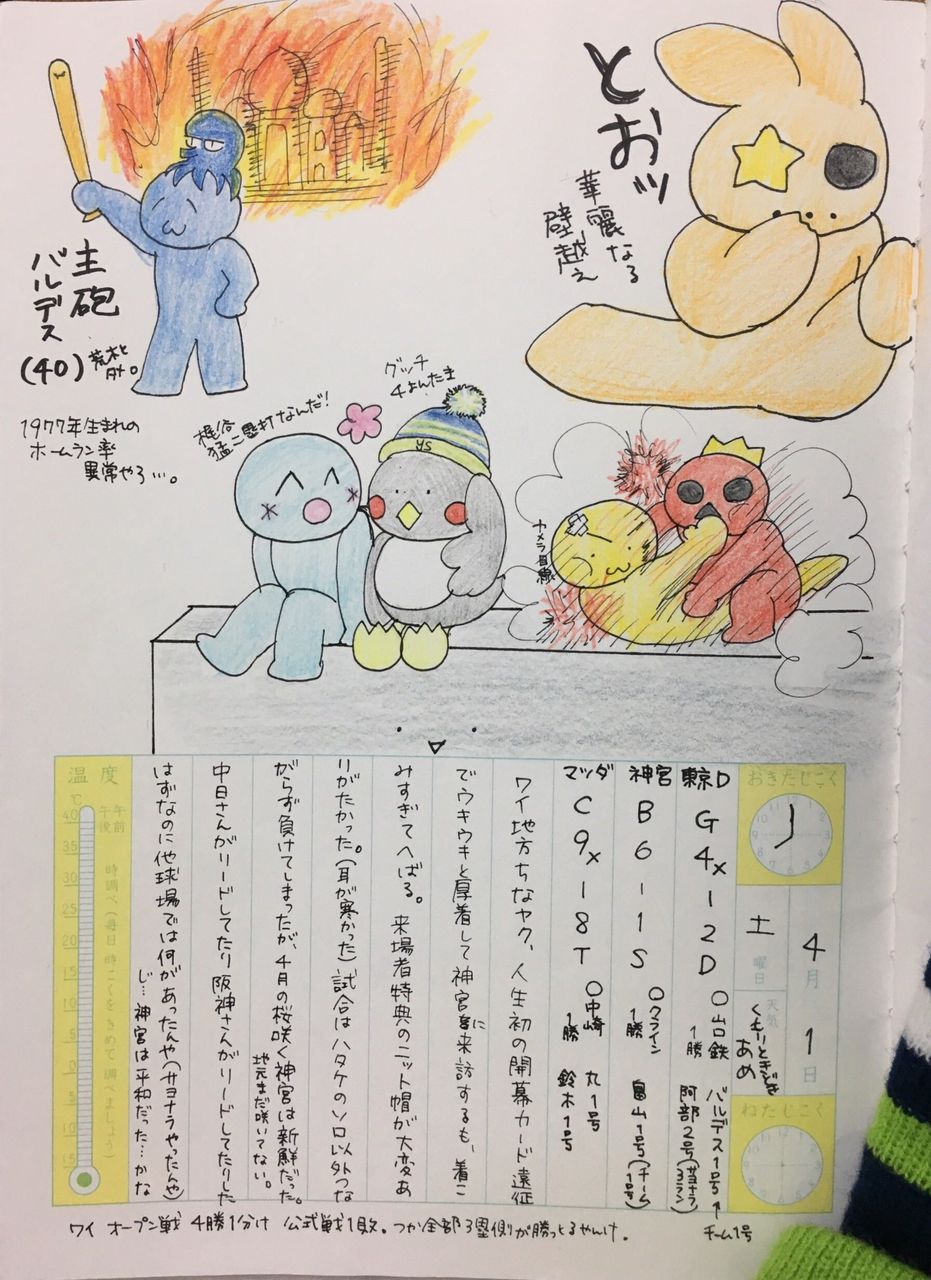 とおッ
華麗なる
壁越え
主砲
バルデス
(40)
荒木と
タメ。
1977年生まれの
ホームラン率
異常やろ…。
梶谷
猛二塁打なんだ!
グッチ
4よんたま
YS
カメラ目線
おきたじこく
4月1日
土
曜日
天気
くもりときどき
あめ
ねたじこく
東京D G 4x-2 D ○山口鉄 1勝 バルデス1号↑チーム1号
阿部2号(サヨナラ3ラン)
神宮 B 6-1 S ○クライン 1勝 畠山1号(チーム1号)
マツダ C 9x-8 T ○中﨑 1勝 丸1号
鈴木1号
ワイ地方ちなヤク、人生初の開幕カード遠征
でウキウキと厚着して神宮に来訪するも、着こ
みすぎてへばる。来場者特典のニット帽が大変あ
りがたかった。(耳が寒かった)試合はハタケのソロ以外つな
がらず負けてしまったが、4月の桜咲く神宮は新鮮だった。
地元まだ咲いてない。
中日さんがリードしてたり阪神さんがリードしてたりした
はずなのに他球場では何があったんや(サヨナラやったんや)
じ…神宮は平和だった…かな
温度
℃
午前
午後
時調べ(毎日時こくをきめて調べましょう)
40
35
30
25
20
15
10
5
0
5
10
15
ワイ オープン戦 4勝1分け 公式戦1敗。つか全部3塁側が勝っとるやんけ。